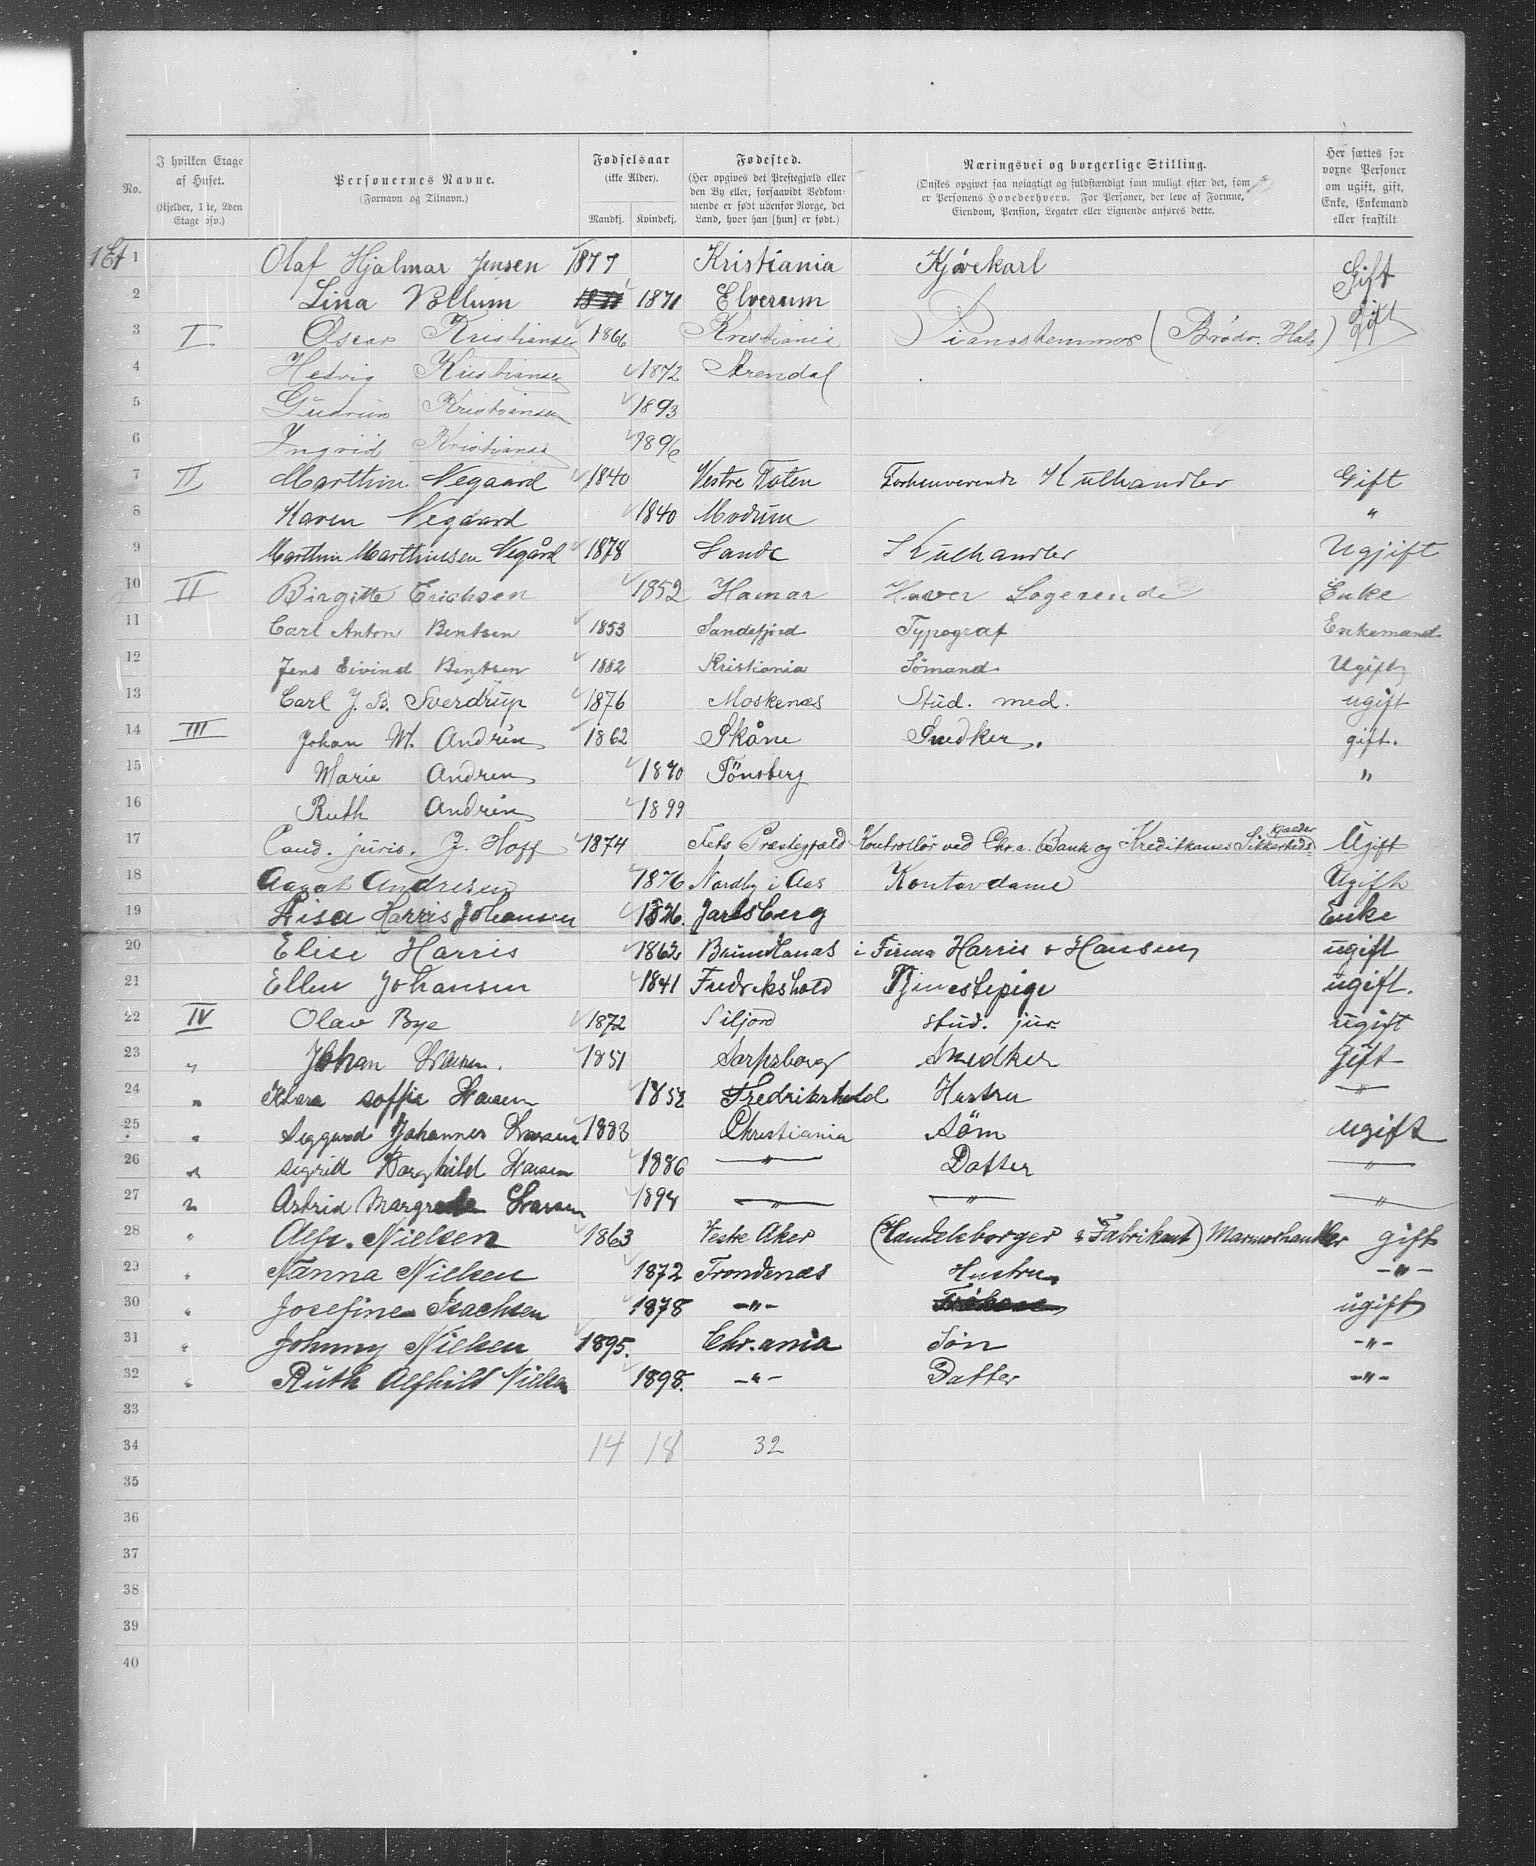 No.
I hvilken Etage af Huset. (Kjelder, 1ste, 2den Etage osv.)
Personernes Navne. (Fornavn og Tilnavn.)
Fødselsaar (ikke Alder). Mandkj. Kvindekj.
Fødested. (Her opgives det Prestegjæld eller den By eller, forsaavidt Vedkommende er født udenfor Norge, det Land, hvor han [hun] er født.)
Næringsvei og borgerlige Stilling. (Ønskes opgivet saa nøiagtigt og fuldstændigt som muligt efter det, som er Personens Hovederhverv. For Personer, der leve af Formue, Eiendom, Pension, Legater eller Lignende anføres dette.
Her sættes for voxne Personer om ugift, gift, Enke, Enkemand eller fraskilt
1 Et 1 Olaf Hjalmar Jensen 1877 Kristiania Kjørekarl Gift
2 Lina Vollum 1871 Elverum Gift
3 I Oscar Kristiansen 1866 Kristiania Pianostemmer (Brødr. Hals) gift
4 Hedvig Kristiansen 1872 Arendal
5 Gudrun Kristiansen 1893
6 Ingrid Kristiansen 1896
7 II Marthin Negaard 1840 Vestre Toten Forhenværende Kulhandler Gift
8 Karen Negaard 1840 Modum "
9 Marthin Marthinssen Negård 1878 Sande Kulhandler Ugjift
10 II Birgitte Erichsen 1852 Hamar Haver Logerende Enke
11 Carl Anton Bentsen 1853 Sandefjord Typograf Enkemand
12 Jens Eivind Bentsen 1882 Kristiania Sømand Ugift
13 Carl J. B. Sverdrup 1876 Moskenæs Stud. med. ugift
14 III Johan M. Andrén 1862 Skåne Snedker. gift.
15 Marie Andrén 1870 Tönsberg "
16 Ruth Andrén 1899
17 Cand. juris. J. Hoff 1874 Fets Præstegjæld Kontrollør ved Chr.a. Bank og Kreditkasses Sikkerheds- kjælder Ugift
18 Aagot Andresen 1876 Nordby i Aas Kontordame Ugift
19 Lisa Harris Johansen 1826. Jarlsberg Enke
20 Elise Harris 1862 Brunlanæs i Firma Harris & Hansen ugift
21 Ellen Johansen 1841 Fredrikshald Tjenestepige ugift.
22 IV Olav Bye 1872 Siljord stud. jur. ugift
23 " Johan Larsen. 1851 Sarpsborg Snedker Gift
24 " Klara soffie Larsen 1852 Fredrikshald Hustru "
25 " Siggurd Johannes Larsen 1888 Christiania Søn ugift
26 " Sigrid Borghild Larsen 1886 " Datter "
27 " Astrid Margrete Larsen 1894 " " "
28 " Alfr. Nielsen 1863 Vestre Aker (Handelsborger & Fabrikant) Marmorhandler gift
29 " Nanna Nielsen 1872 Trondenæs Hustru -"-
30 " Josefine Isachsen 1878 -"- ugift
31 " Johnny Nielsen 1895. Chr.ania Søn -"-
32 " Ruth Alfhild Nielsen 1898. -"- Datter -"-
33
34 14 18 32
35
36
37
38
39
40